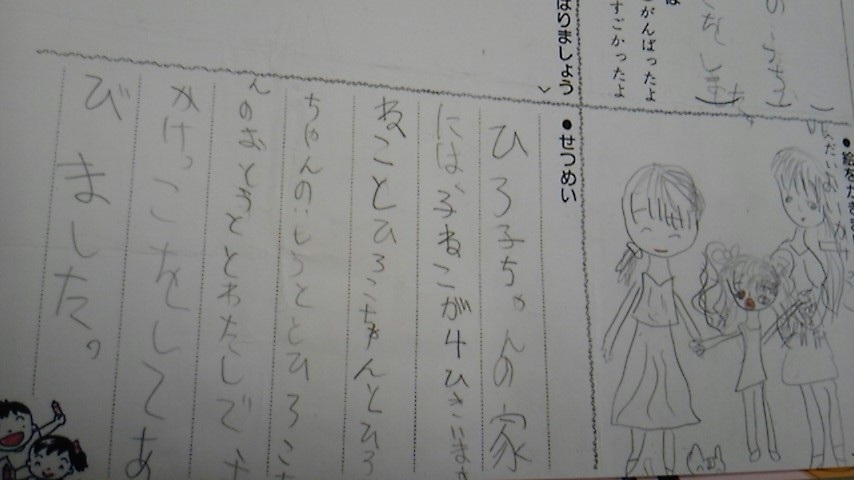 ●絵をかき
の
をしました
は
がんばったよ
すごかったよ
ばりましょう
●せつめい
ひろ子ちゃんの家
には、子ねこが4ひきいます
ねことひろこちゃんとひろ
ちゃんのいもうととひろこち
んのおとうととわたしでお
かけっこをしてあ
びました。